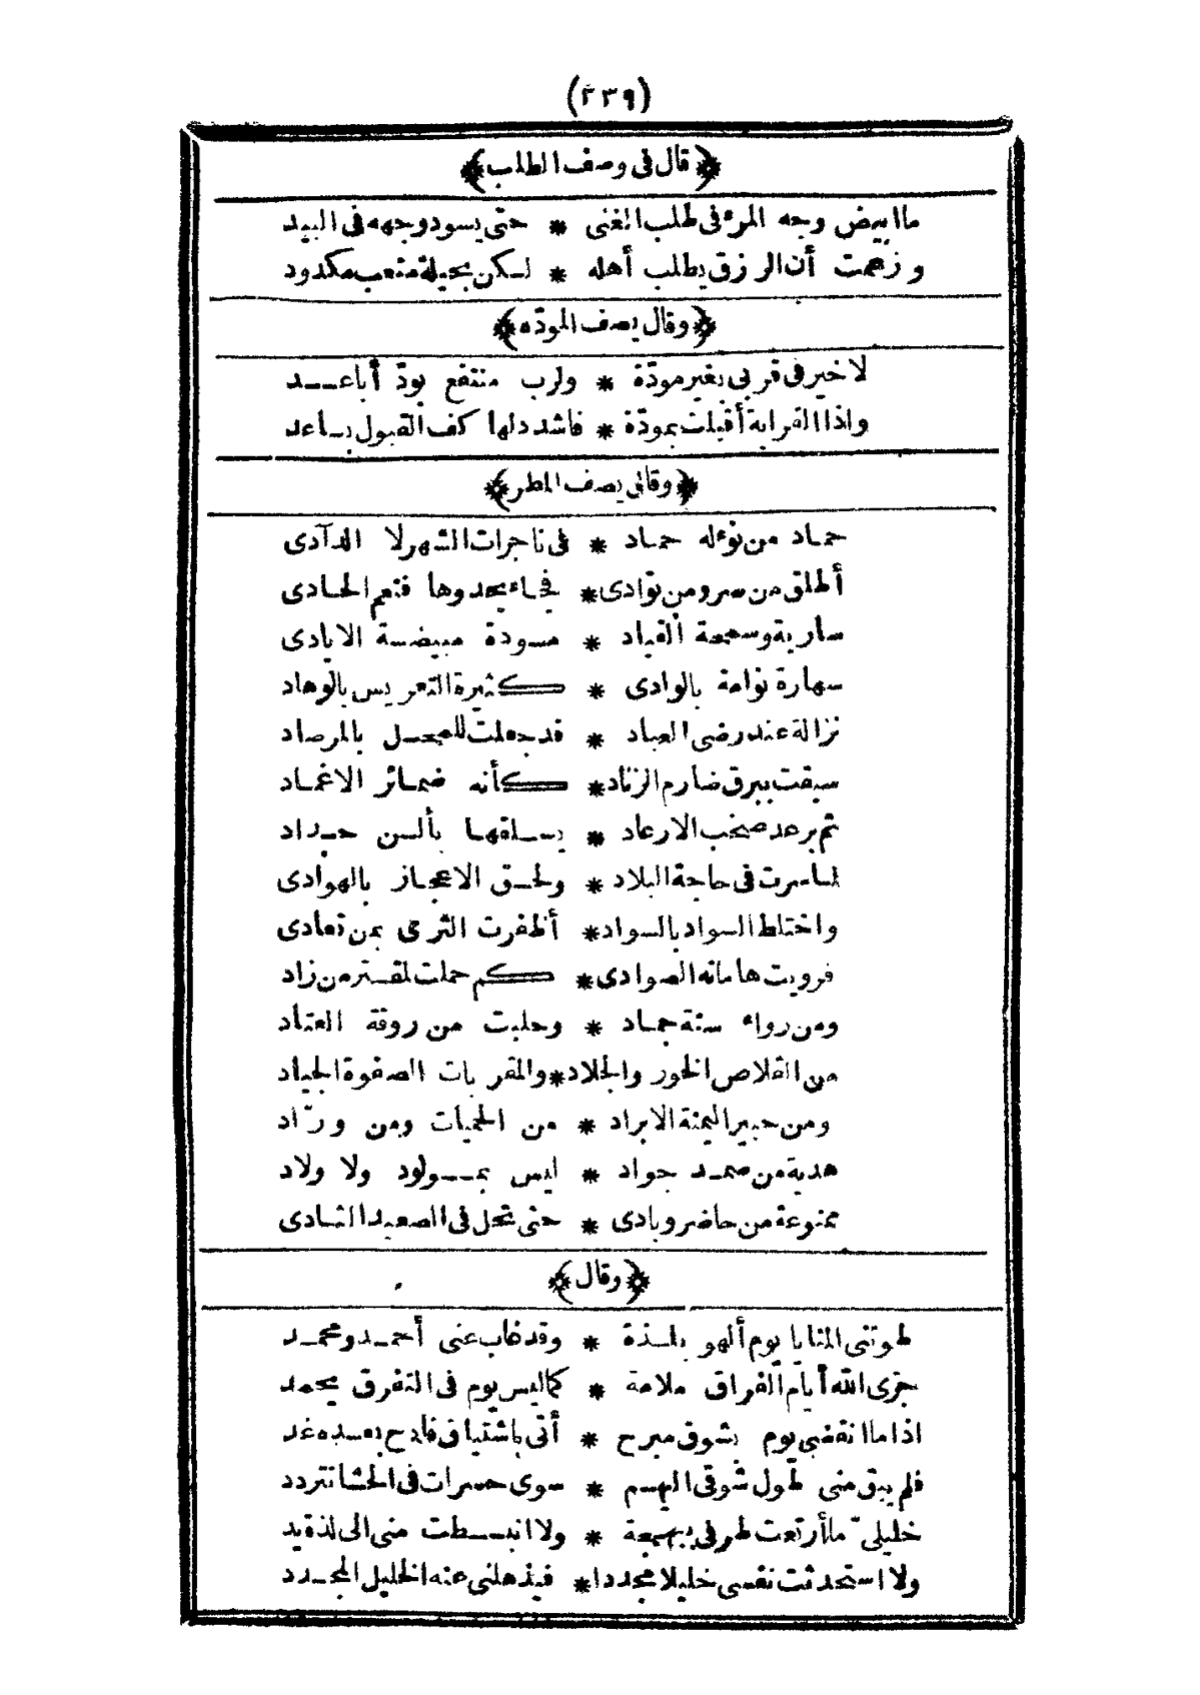 (٣٣٩)
﴿قال فى وصف الطلب﴾
ما ابيض وجه المرء فى طلب الغنى * حتى يسود وجهه فى البيد
وزعمت أن الرزق يطلب أهله * لكن بحيلة متعب مكدود
﴿وقال يصف المودّه﴾
لا خير فى قربى بغير مودّة * ولرب منتفع بودّ أباعـــد
واذا القرابة أقبلت بمودّة * فاشدد لها كف القبول بساعد
﴿وقال يصف المطر﴾
حماد من نوء له حماد * فى ناجرات الشهر لا الدآدى
أطلق من سرو من توادى * فجاء يحدوها فنعم الحادى
سارية وسمحة القياد * مسودة مبيضة الايادى
سهارة نوامة بالوادى * كثيرة التعريس بالوهاد
نزالة عند رضى العباد * قد جعلت للمحل بالمرصاد
سيقت ببرق ضارم الزناد * كأنه ضمائر الاغماد
ثم برعد صخب الارعاد * يسلقها بألسن حداد
لما سرت فى حاجة البلاد * ولحق الاعجاز بالهوادى
واختلط السواد بالسواد * أظفرت الثرى بمن تعادى
فرويت هاماته الصوادى * كم حملت لمقتر من زاد
ومن رواء سنة جماد * وحلبت من روقة العتاد
من القلاص الخور والجلاد * والمقربات الصفوة الجياد
ومن حبير اليمنة الابراد * من الحميات ومن ورّاد
هدية من صمد جواد * ليس بمــولود ولا ولاد
ممنوعة من حاضر وبادى * حتى تحل فى الصعيد الثادى
﴿وقال﴾
طوتنى المنايا يوم ألهو بلذة * وقد غاب عنى أحمد ومحمد
جزى الله أيام الفراق ملامة * كما ليس يوم فى التفرق يحمد
اذا ما انقضى يوم بشوق مبرح * أتى باشتياق فادح بعده غد
فلم يبق منى طول شوقى اليهم * سوى حسرات فى الحشا تتردد
خليلىّ ما أرتعت طرفى ببهجة * ولا انبسطت منى الى لذة يد
ولا استحدثت نفسى خليلا مجددا * فيذهلنى عنه الخليل المجدد